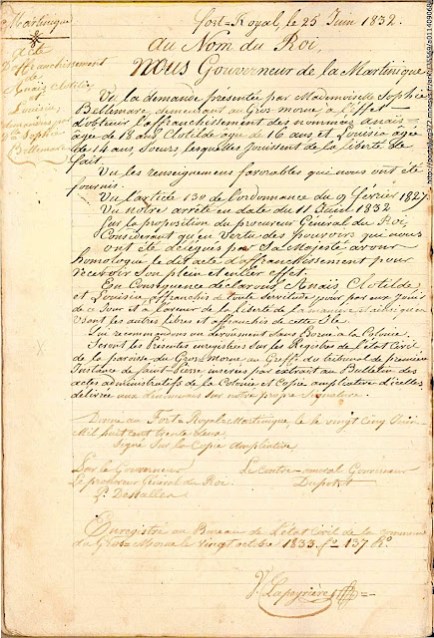 Martinique
acte
D'affranchissement
de
Anaïs Clotilde
Louisia,
par
Mlle Sophie
Bellemare
Fort-Royal, le 25 Juin 1832.
au Nom du Roi,
Nous Gouverneur de la Martinique
Vu la demande présentée par Mademoiselle Sophie
Bellemare, demeurant au Gros morne, à l'effet
d'obtenir l'affranchissement des nommées anaïs
agée de 18 ans Clotilde agée de 16 ans et Louisia agée
de 14 ans, Soeurs, lesquelles jouissent de la liberté de
fait.
Vu les renseignemens favorables qui nous ont été
fournis.
Vu l'article 130 de l'ordonnance du 9 février 1827
Vu notre arrêté en date du 11 1832
Sur la proposition du procureur Général du Roi
Considérant qu'en vertu des pouvoirs qui nous
ont été délégués par Sa Majesté avons
homologué le dit acte d'affranchissement pour
recevoir Son plein et entier effet.
En Conséquence déclarons Anaïs Clotilde
et Louisia, affranchies de toute servitude pour par eux Jouir
de ce Jour et à l'avenir de la liberté de la manière et ainsi qu'en
usent les autres libres et affranchis de cette Ile.
Seront les Présentes enregistrées Sur les Registres de l'état Civil
de la paroisse du Gros morne au Greffe du tribunal de première
Instance de Saint-Pierre insérées par extrait au Bulletin des
actes administratifs de la Colonie et Copie ampliative d'icelles
délivrée Sur notre propre Signature.
Donné au Fort-Royal Martinique, le vingt Cinq Juin
Mil huit cent trente deux
Signé Sur la Copie ampliative
Par le Gouverneur
Le procureur Général du Roi
Le Contre-amiral Gouverneur
Dupotet
Enregistré au Bureau de l'état Civil de la
du Gros Morne le vingt 1833. fo 137 Ro.
Lapeyrière